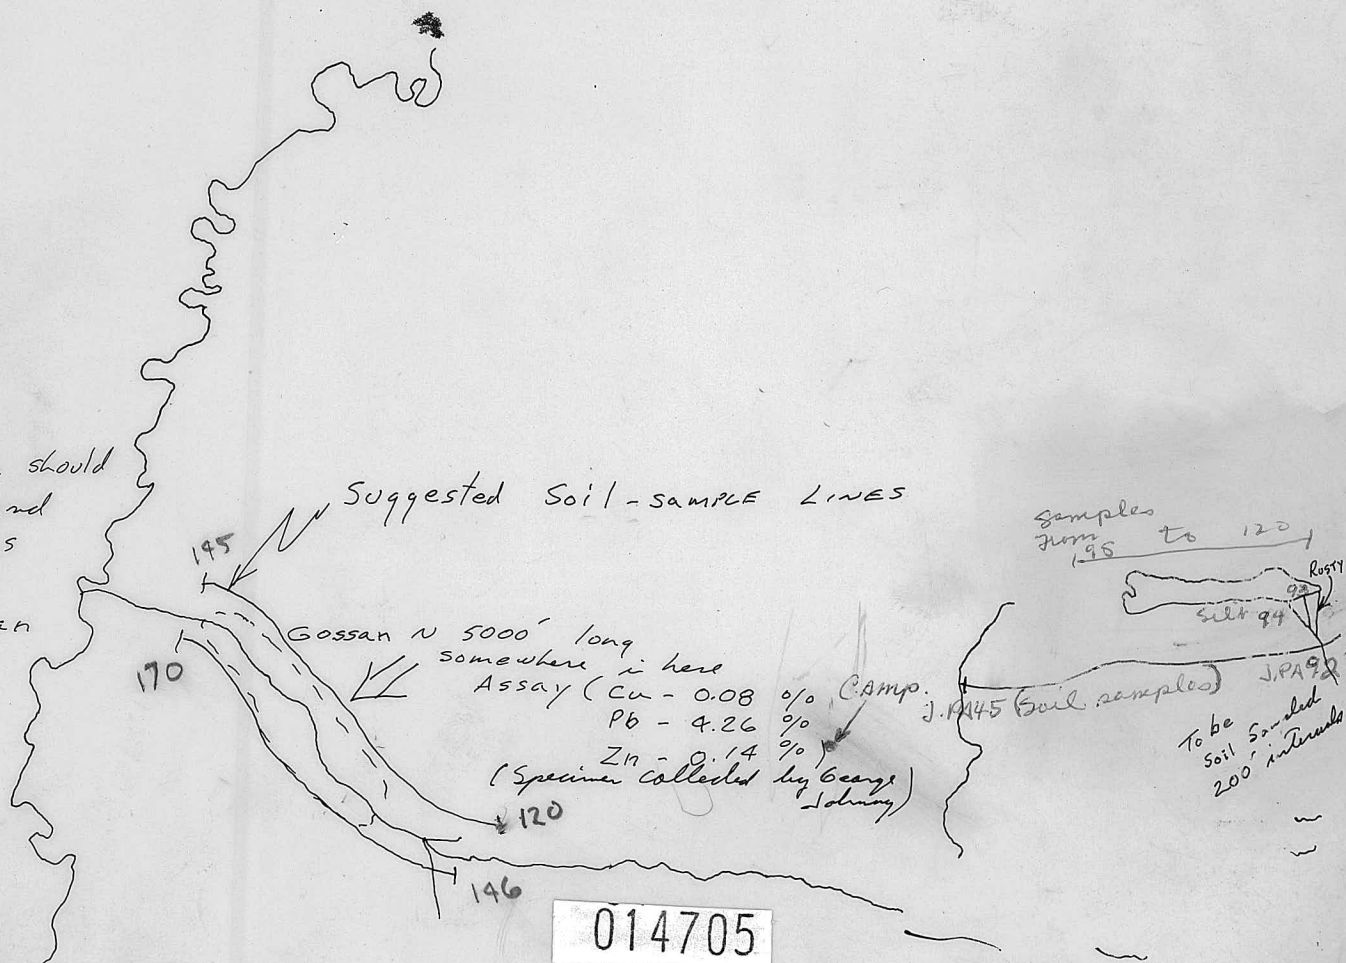 should
nd
s
en
Suggested Soil-SAMPLE LINES
145
Gossan ~ 5000' long
somewhere in here
Assay (Cu - 0.08 %
Pb - 4.26 %
Zn - 0.14 %)
(Specimen collected by George
Johnny)
170
120
146
CAMP.
Samples
From
195 to 120
RUSTY
Silt 94
J.PA45 (Soil samples)
J.PA92
To be
Soil Sampled
200' intervals
014705